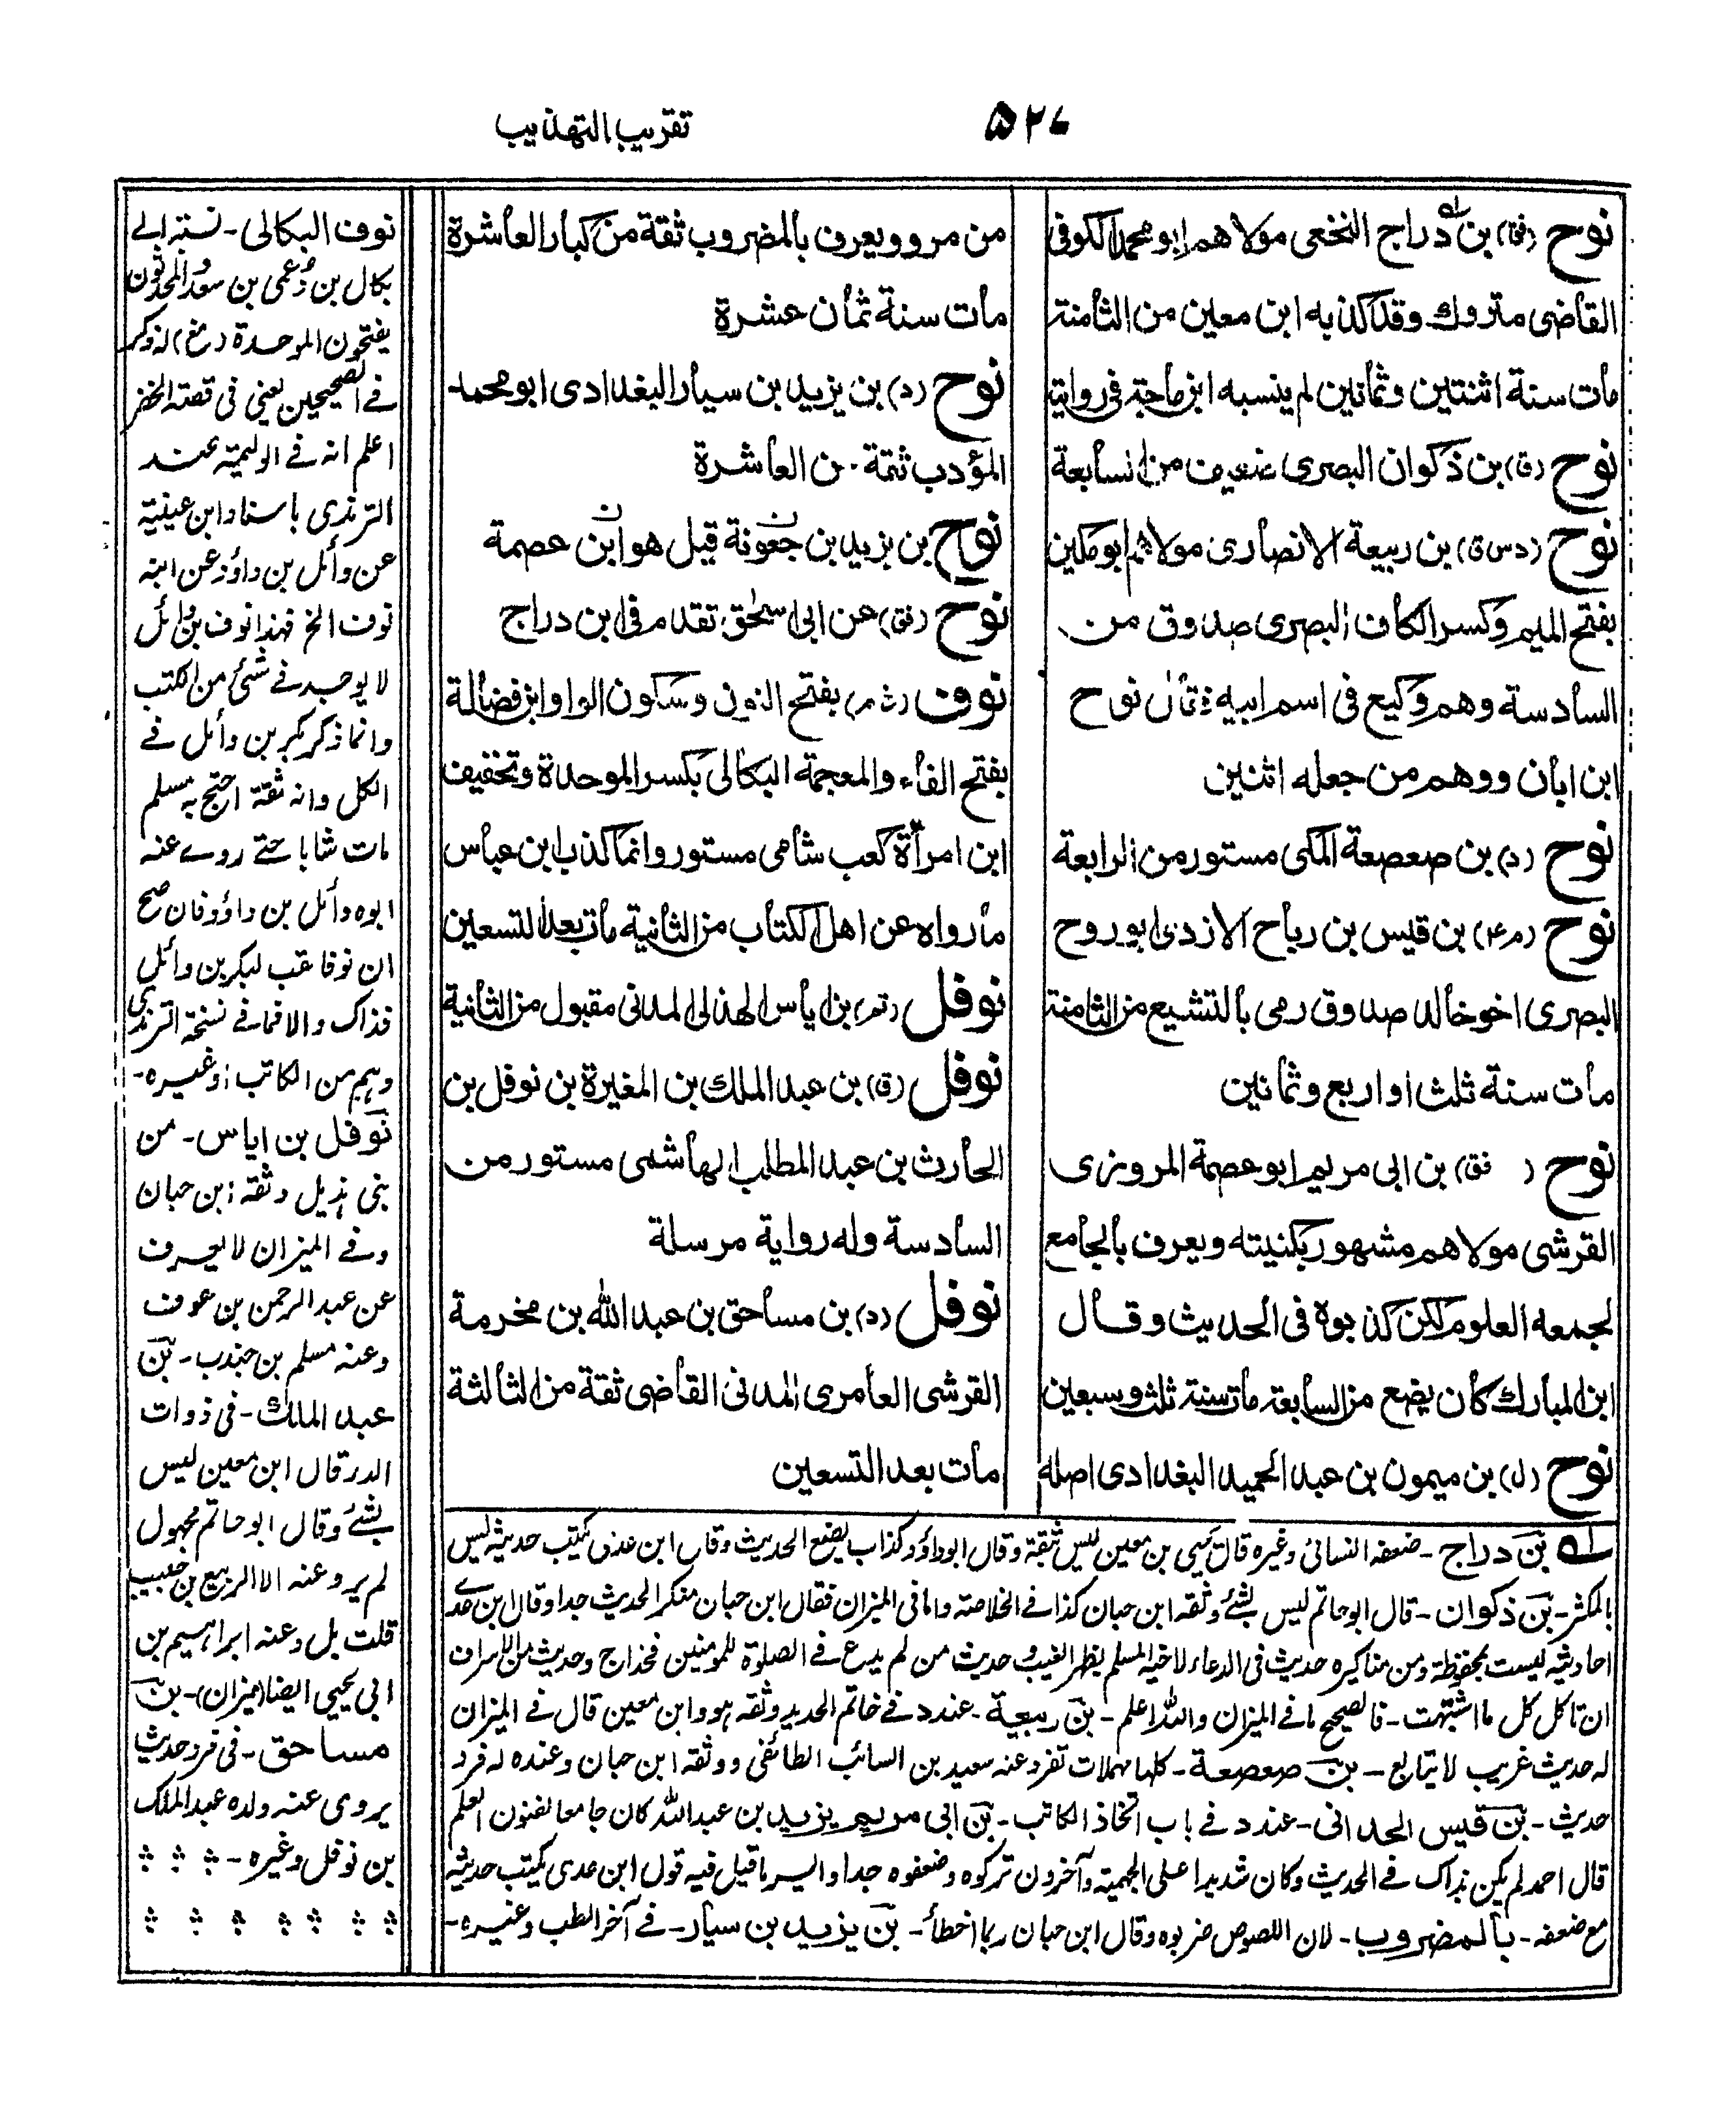 ۵۲۷
تقريب التهذيب
نوح (فق) بن دراج النخعى مولاهم ابو محمد الكوفى
القاضى متروك وقد كذبه ابن معين من الثامنة
مات سنة اثنتين وثمانين لم ينسبه ابن ماجة فى روايته
نوح (ق) بن ذكوان البصرى ضعيف من السابعة
نوح (د س ق) بن ربيعة الانصارى مولاهم ابو مكين
بفتح الميم وكسر الكاف البصرى صدوق من
السادسة وهم وكيع فى اسم ابيه فقال نوح
ابن ابان ووهم من جعله اثنين
نوح (د) بن صعصعة المكى مستور من الرابعة
نوح (م ۴) بن قيس بن رياح الازدى ابو روح
البصرى اخو خالد صدوق رمى بالتشيع من الثامنة
مات سنة ثلث او اربع وثمانين
نوح ( فق) بن ابى مريم ابو عصمة المروزى
القرشى مولاهم مشهور بكنيته ويعرف بالجامع
لجمعه العلوم لكن كذبوه فى الحديث وقال
ابن المبارك كان يضع من السابعة مات سنة ثلث وسبعين
نوح (ل) بن ميمون بن عبد الحميد البغدادى اصله
من مرو ويعرف بالمضروب ثقة من كبار العاشرة
مات سنة ثمان عشرة
نوح (د) بن يزيد بن سيار البغدادى ابو محمد
المؤدب ثقة من العاشرة
نوح بن يزيد بن جعونة قيل هو ابن عصمة
نوح (فق) عن ابى اسحق تقدم فى ابن دراج
نوف (خ م) بفتح النون وسكون الواو ابن فضالة
بفتح الفاء والمعجمة البكالى بكسر الموحدة وتخفيف
ابن امرأة كعب شامى مستور وانما كذب ابن عباس
ما رواه عن اهل الكتاب من الثانية مات بعد التسعين
نوفل (تم) بن اياس الهذلى المدنى مقبول من الثانية
نوفل (ق) بن عبد الملك بن المغيرة بن نوفل بن
الحارث بن عبد المطلب الهاشمى مستور من
السادسة وله رواية مرسلة
نوفل (د) بن مساحق بن عبد الله بن مخرمة
القرشى العامرى المدنى القاضى ثقة من الثالثة
مات بعد التسعين
له بن دراج - ضعفه النسائى وغيره قال يحيى بن معين ليس بثقة وقال ابو داؤد كذاب يضع الحديث وقال ابن عدى يكتب حديثه ليس
بالمكثر - بن ذكوان - قال ابو حاتم ليس بشئ وثقه ابن حبان كذا فى الخلاصة واما فى الميزان فقال ابن حبان منكر الحديث جدا وقال ابن عدى
احاديثه ليست بمحفوظة ومن مناكيره حديث فى الدعاء لاخيه المسلم بظهر الغيب وحديث من لم يدع فى الصلوة للمومنين فخداج وحديث من السرف
ان تاكل كل ما اشتهيت - فالصحيح ما فى الميزان والله اعلم - بن ربيعة - عند د فى خاتم الحديد وثقه هو وابن معين قال فى الميزان
له حديث غريب لا يتابع - بن صعصعة - كلها مهملات تفرد عنه سعيد بن السائب الطائفى ووثقه ابن حبان وعنده له فرد
حديث - بن قيس الحدانى - عند د فى باب اتخاذ الكاتب - بن ابى مريم يزيد بن عبد الله كان جامعا لفنون العلم
قال احمد لم يكن بذاك فى الحديث وكان شديدا على الجهمية وآخرون تركوه وضعفوه جدا وايسر ما قيل فيه قول ابن عدى يكتب حديثه
مع ضعفه - بالمضروب - لان اللصوص ضربوه وقال ابن حبان ربما اخطأ - بن يزيد بن سيار - فى آخر الطب وغيره -
نوف البكالى - نسبته الى
بكال بن دعمى بن سعد المحدثون
يفتحون الموحدة (مغ) له ذكر
فى الصحيحين يعنى فى قصة الخضر
اعلم انه فى الوليمة عند
الترمذى باسناد ابن عيينة
عن وائل بن داؤد عن ابنه
نوف الخ فهذا نوف بن وائل
لا يوجد فى شئ من الكتب
وانما ذكر بكر بن وائل فى
الكل وانه ثقة احتج به مسلم
مات شابا حتى روى عنه
ابوه وائل بن داؤد فان صح
ان نوفا لقب لبكر بن وائل
فذاك والا فما فى نسخة الترمذى
وهم من الكاتب او غيره -
نوفل بن اياس - من
بنى هذيل وثقه ابن حبان
وفى الميزان لا يعرف
عن عبد الرحمن بن عوف
وعنه مسلم بن جندب - بن
عبد الملك - فى ذوات
الدر قال ابن معين ليس
بشئ وقال ابو حاتم مجهول
لم يرو عنه الا الربيع بن حبيب
قلت بل وعنه ابراهيم بن
ابى يحيى ايضا (ميزان) - بن
مساحق - فى فرد حديث
يروى عنه ولده عبد الملك
بن نوفل وغيره -